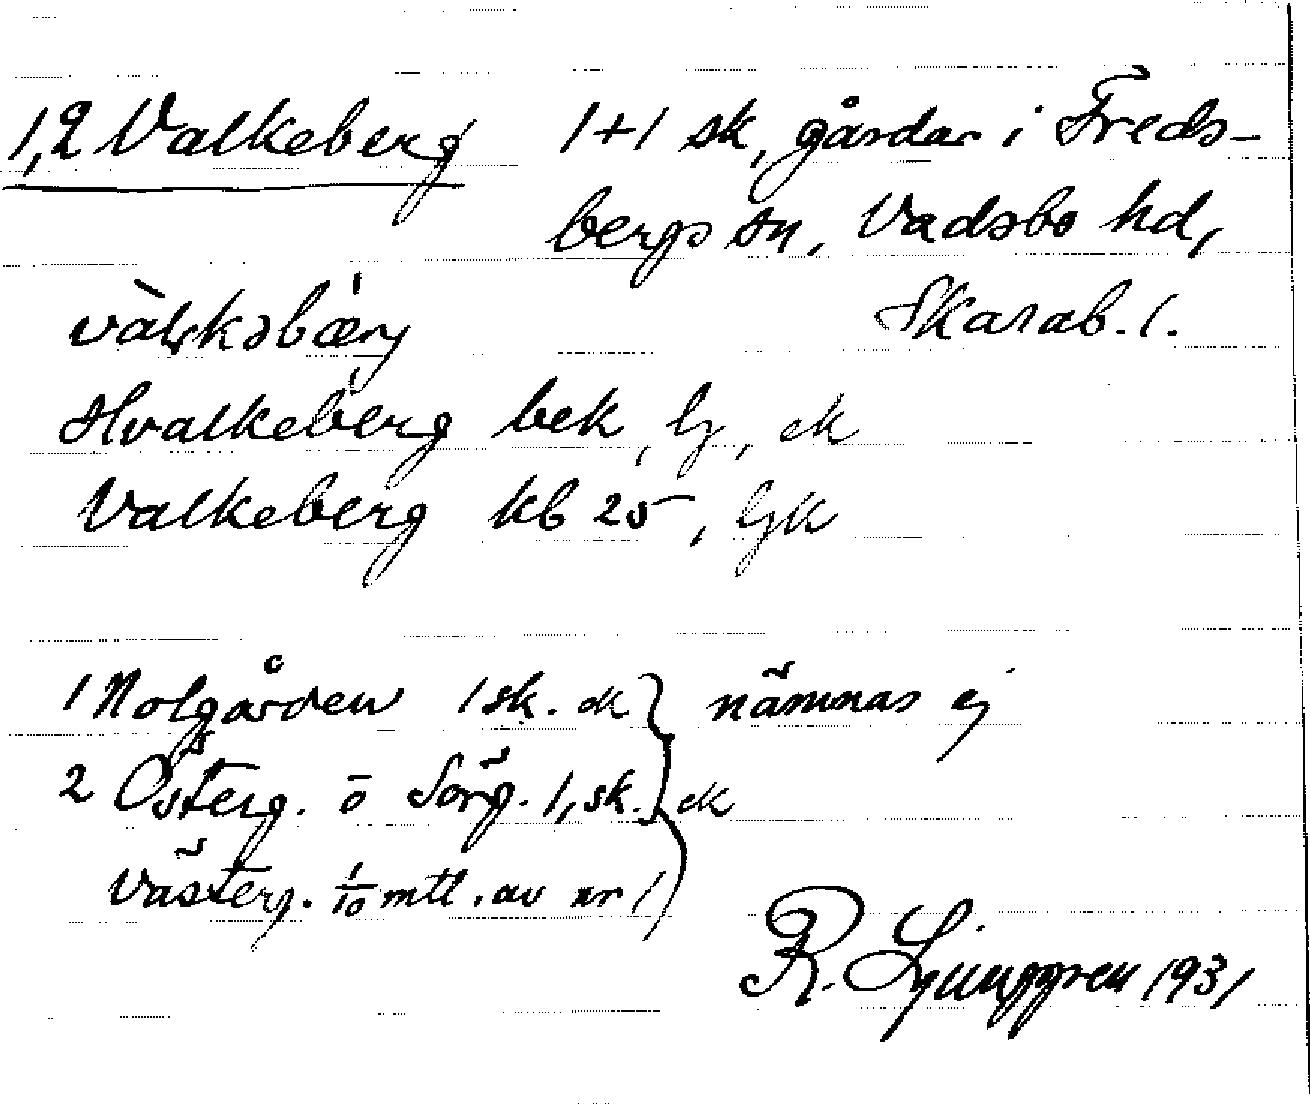 1,2 Valkeberg 1+1 sk, gårdar i Freds-
bergs sn, Vadsbo hd,
Skarab. l.
Hvalkeberg bek, lj, ek
Valkeberg kb 25, ljk
1 Nolgården 1 sk. ek } nämnas ej
2 Österg. o Sörg. 1, sk. } ek
Västerg. 1/10 mtl. av nr 1
R. Ljunggren 1931